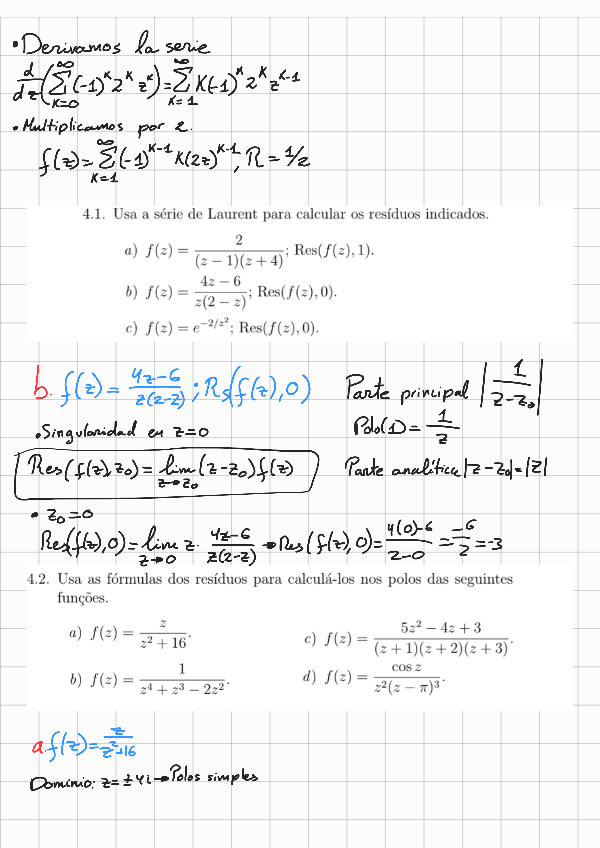 • Derivamos la serie
d/dz (∑_{k=0}^{∞} (-1)^k 2^k z^k) = ∑_{k=1}^{∞} K(-1)^k 2^k z^{k-1}
• Multiplicamos por 2.
f(z) = ∑_{k=1}^{∞} (-1)^{k-1} K(2z)^{k-1}, R = 1/2
4.1. Usa a série de Laurent para calcular os resíduos indicados.
a) f(z) = 2/((z − 1)(z + 4)); Res(f(z), 1).
b) f(z) = (4z − 6)/(z(2 − z)); Res(f(z), 0).
c) f(z) = e^{−2/z²}; Res(f(z), 0).
b. f(z) = (4z-6)/(z(2-z)); Rs(f(z), 0)
Parte principal |1/(z-z₀)|
• Singularidad en z=0
Polo(1) = 1/z
Res(f(z), z₀) = lim_{z→z₀} (z-z₀) f(z)
Parte analítica |z-z₀| = |z|
• z₀=0
Res(f(z), 0) = lim_{z→0} z · (4z-6)/(z(2-z)) → Res(f(z), 0) = (4(0)-6)/(2-0) = -6/2 = -3
4.2. Usa as fórmulas dos resíduos para calculá-los nos polos das seguintes
funções.
a) f(z) = z/(z² + 16).
c) f(z) = (5z² − 4z + 3)/((z + 1)(z + 2)(z + 3)).
b) f(z) = 1/(z⁴ + z³ − 2z²).
d) f(z) = cos z/(z²(z − π)³).
a. f(z) = z/(z²+16)
Dominio: z = ±4i → Polos simples